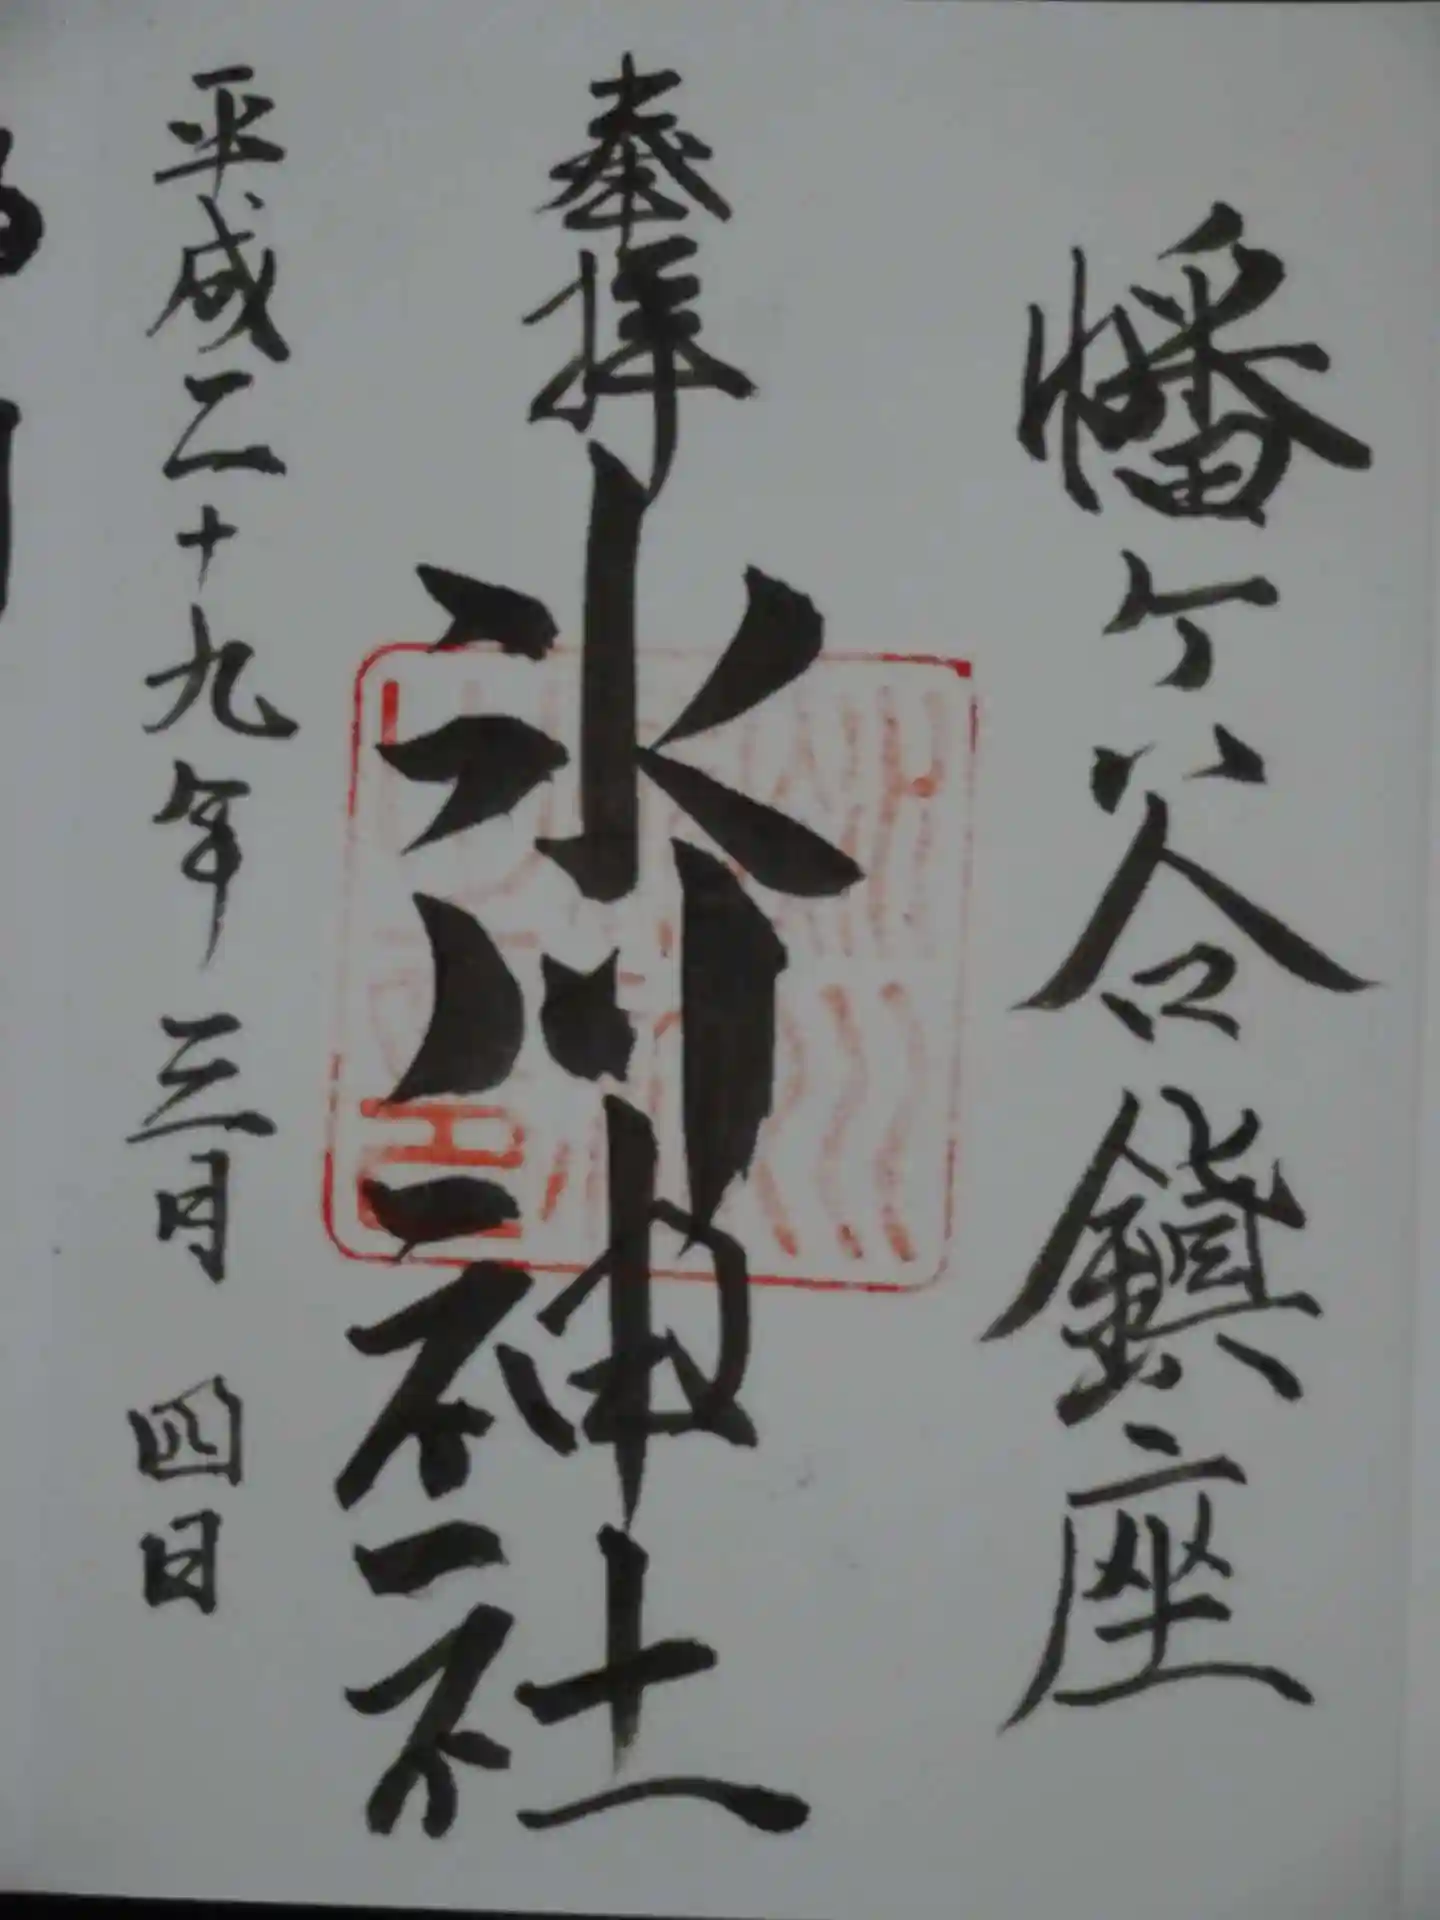 幡ケ谷鎮座
奉拝
氷川神社
平成二十九年三月四日